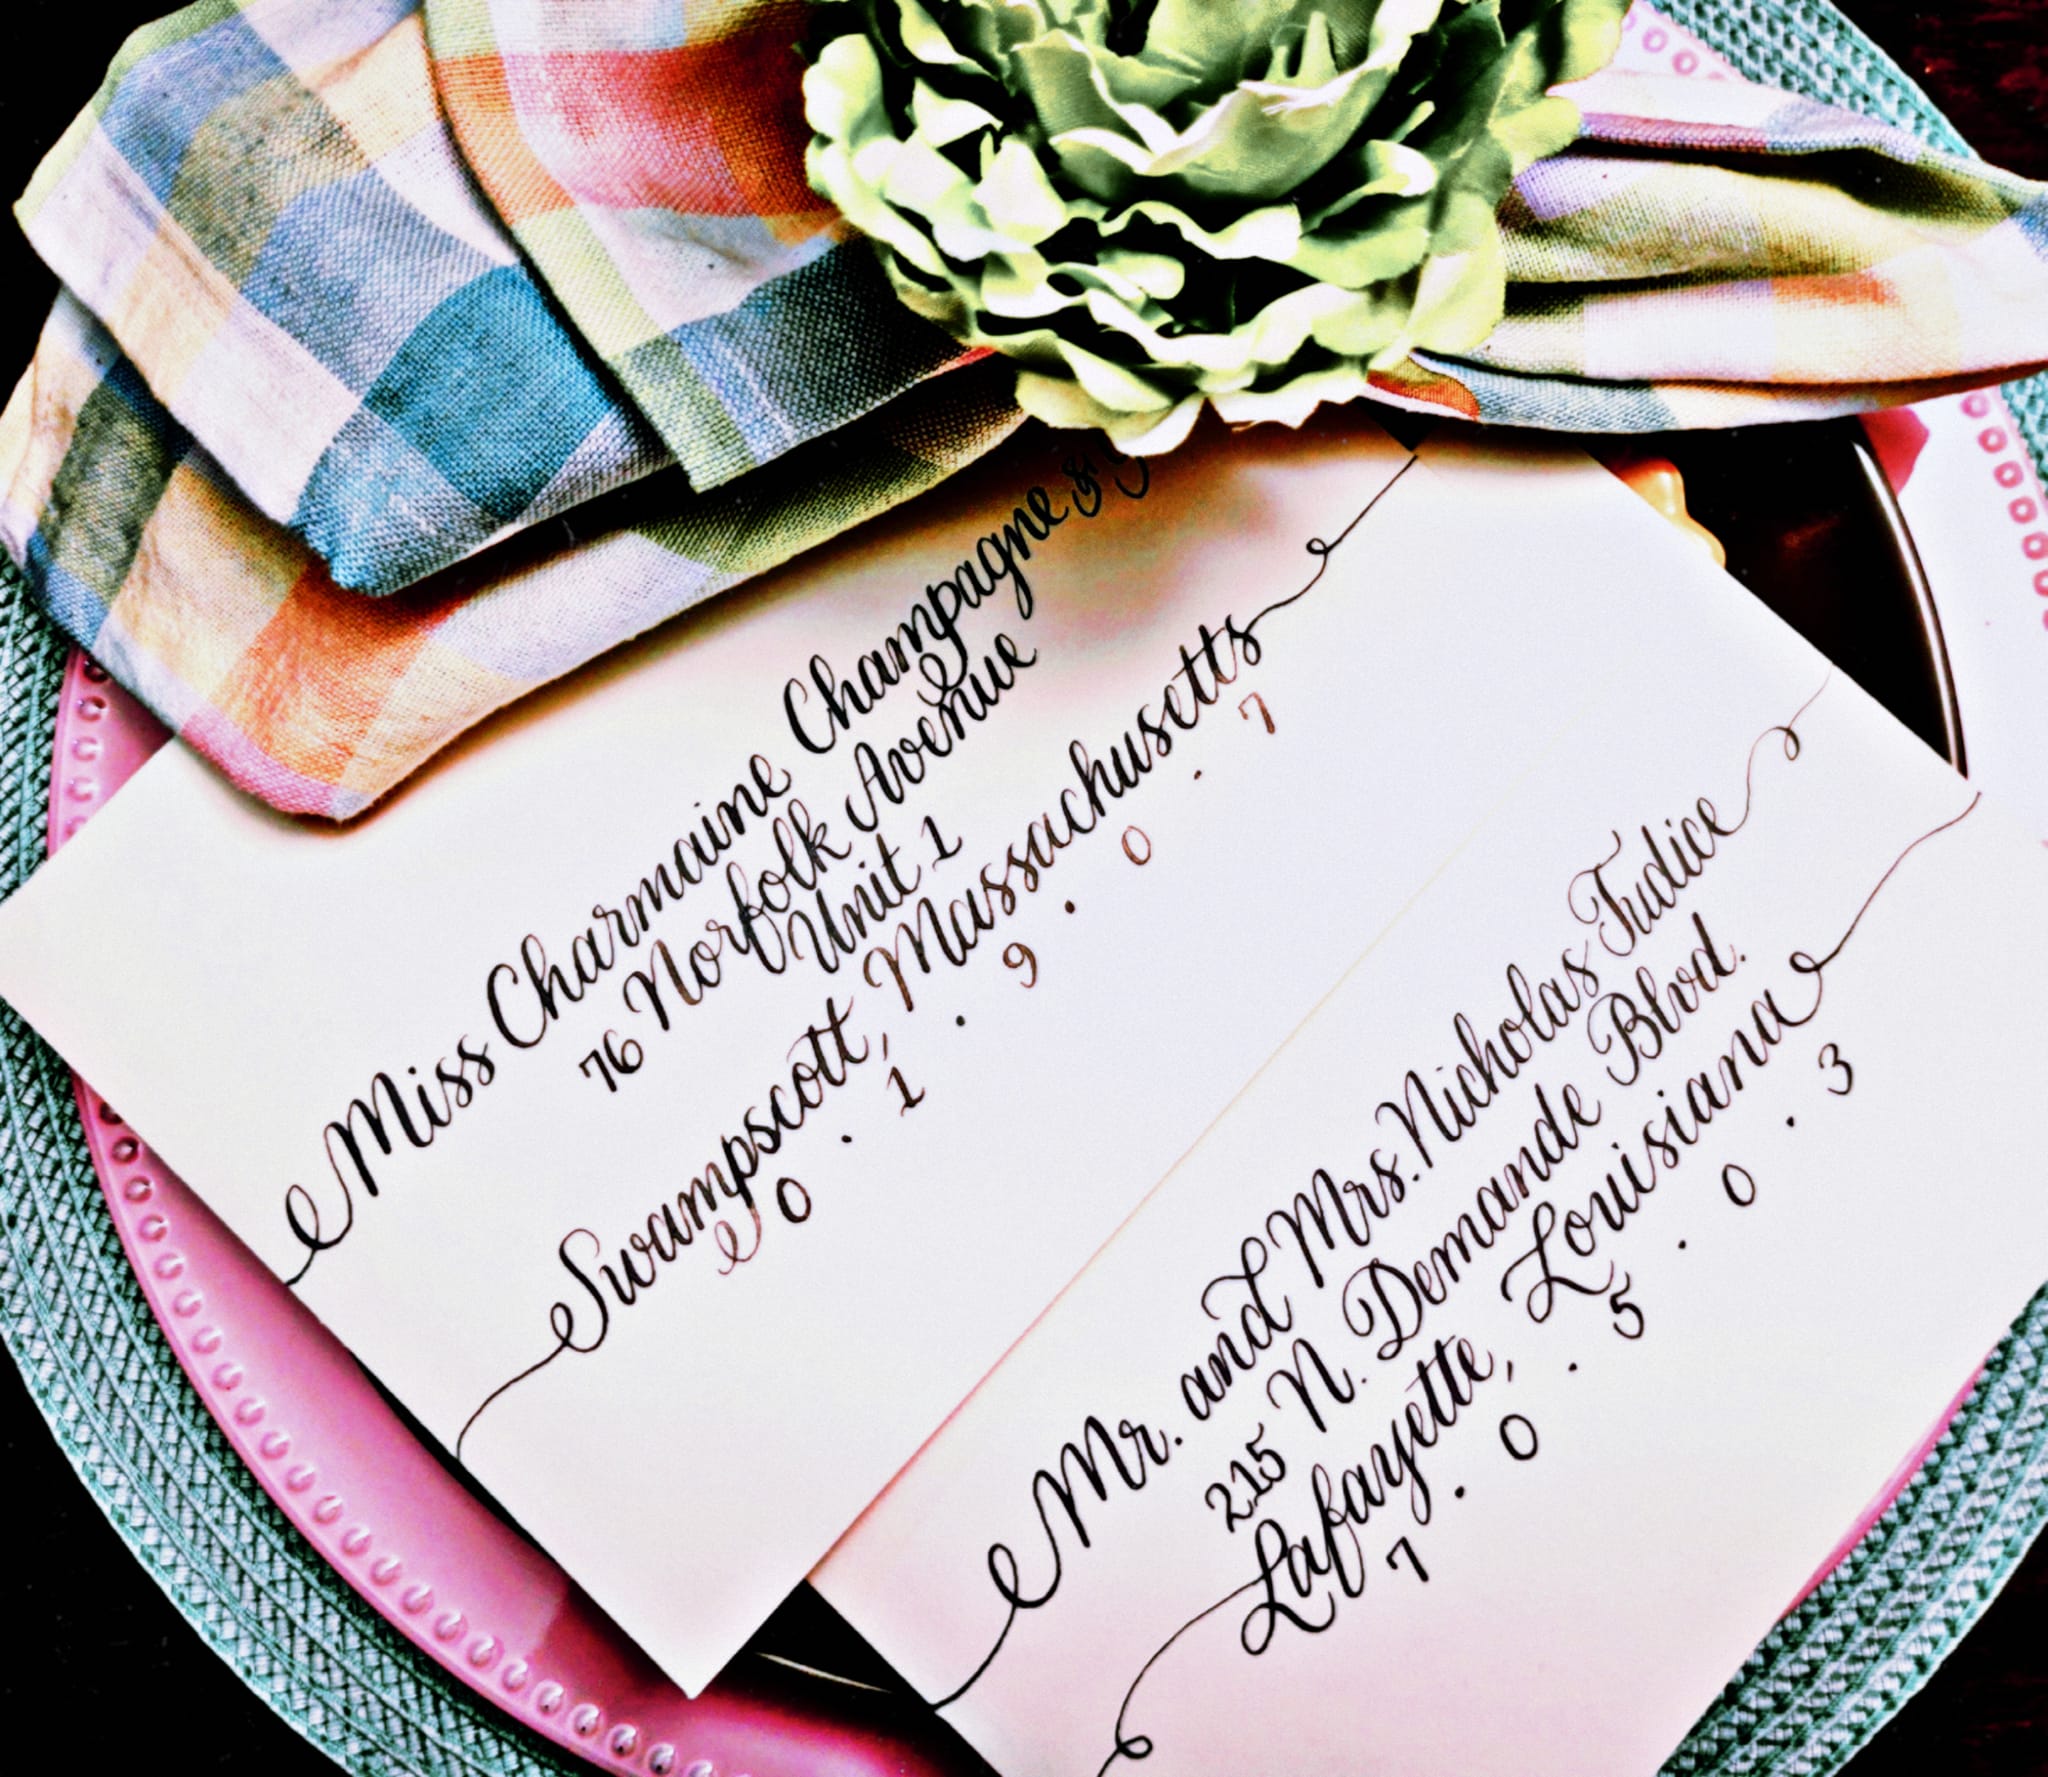 Miss Charmaine Champagne &
76 Norfolk Avenue
Unit 1
Swampscott, Massachusetts
0 . 1 . 9 . 0 . 7
Mr. and Mrs. Nicholas Judice
215 N. Demande Blvd.
Lafayette, Louisiana
7 . 0 . 5 . 0 . 3